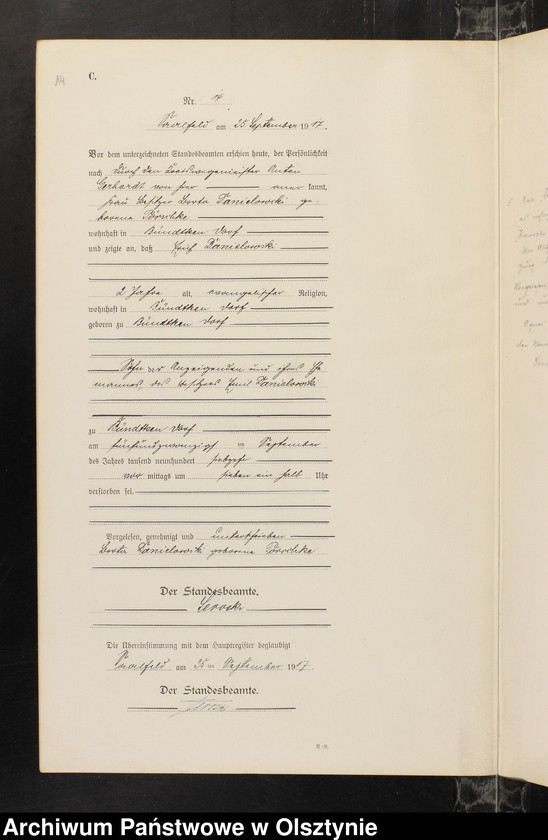 14
C.
Nr. 14.
Saalfeld am 25 September 1917.
Vor dem unterzeichneten Standesbeamten erschien heute, der Persönlichkeit
nach durch den
Gerhardt von hier anerkannt,
Frau Besitzer Berta Danielowski ge-
borene
wohnhaft in Kündtken Dorf
und zeigte an, daß Erich Danielowski
2 Jahre alt, evangelischer Religion,
wohnhaft in Kündtken Dorf
geboren zu Kündtken Dorf
Sohn der Anzeigenden und ihres Ehe-
mannes, des Besitzers Emil Danielowski
zu Kündtken Dorf
am fünfundzwanzigsten September
des Jahres tausend neunhundert siebzehn
vor mittags um sieben ein halb Uhr
verstorben sei.
Vorgelesen, genehmigt und unterschrieben
Berta Danielowski geborene
Der Standesbeamte.
Die Übereinstimmung mit dem Hauptregister beglaubigt
Saalfeld am 25 ten September 1917.
Der Standesbeamte.
Archiwum Państwowe w Olsztynie